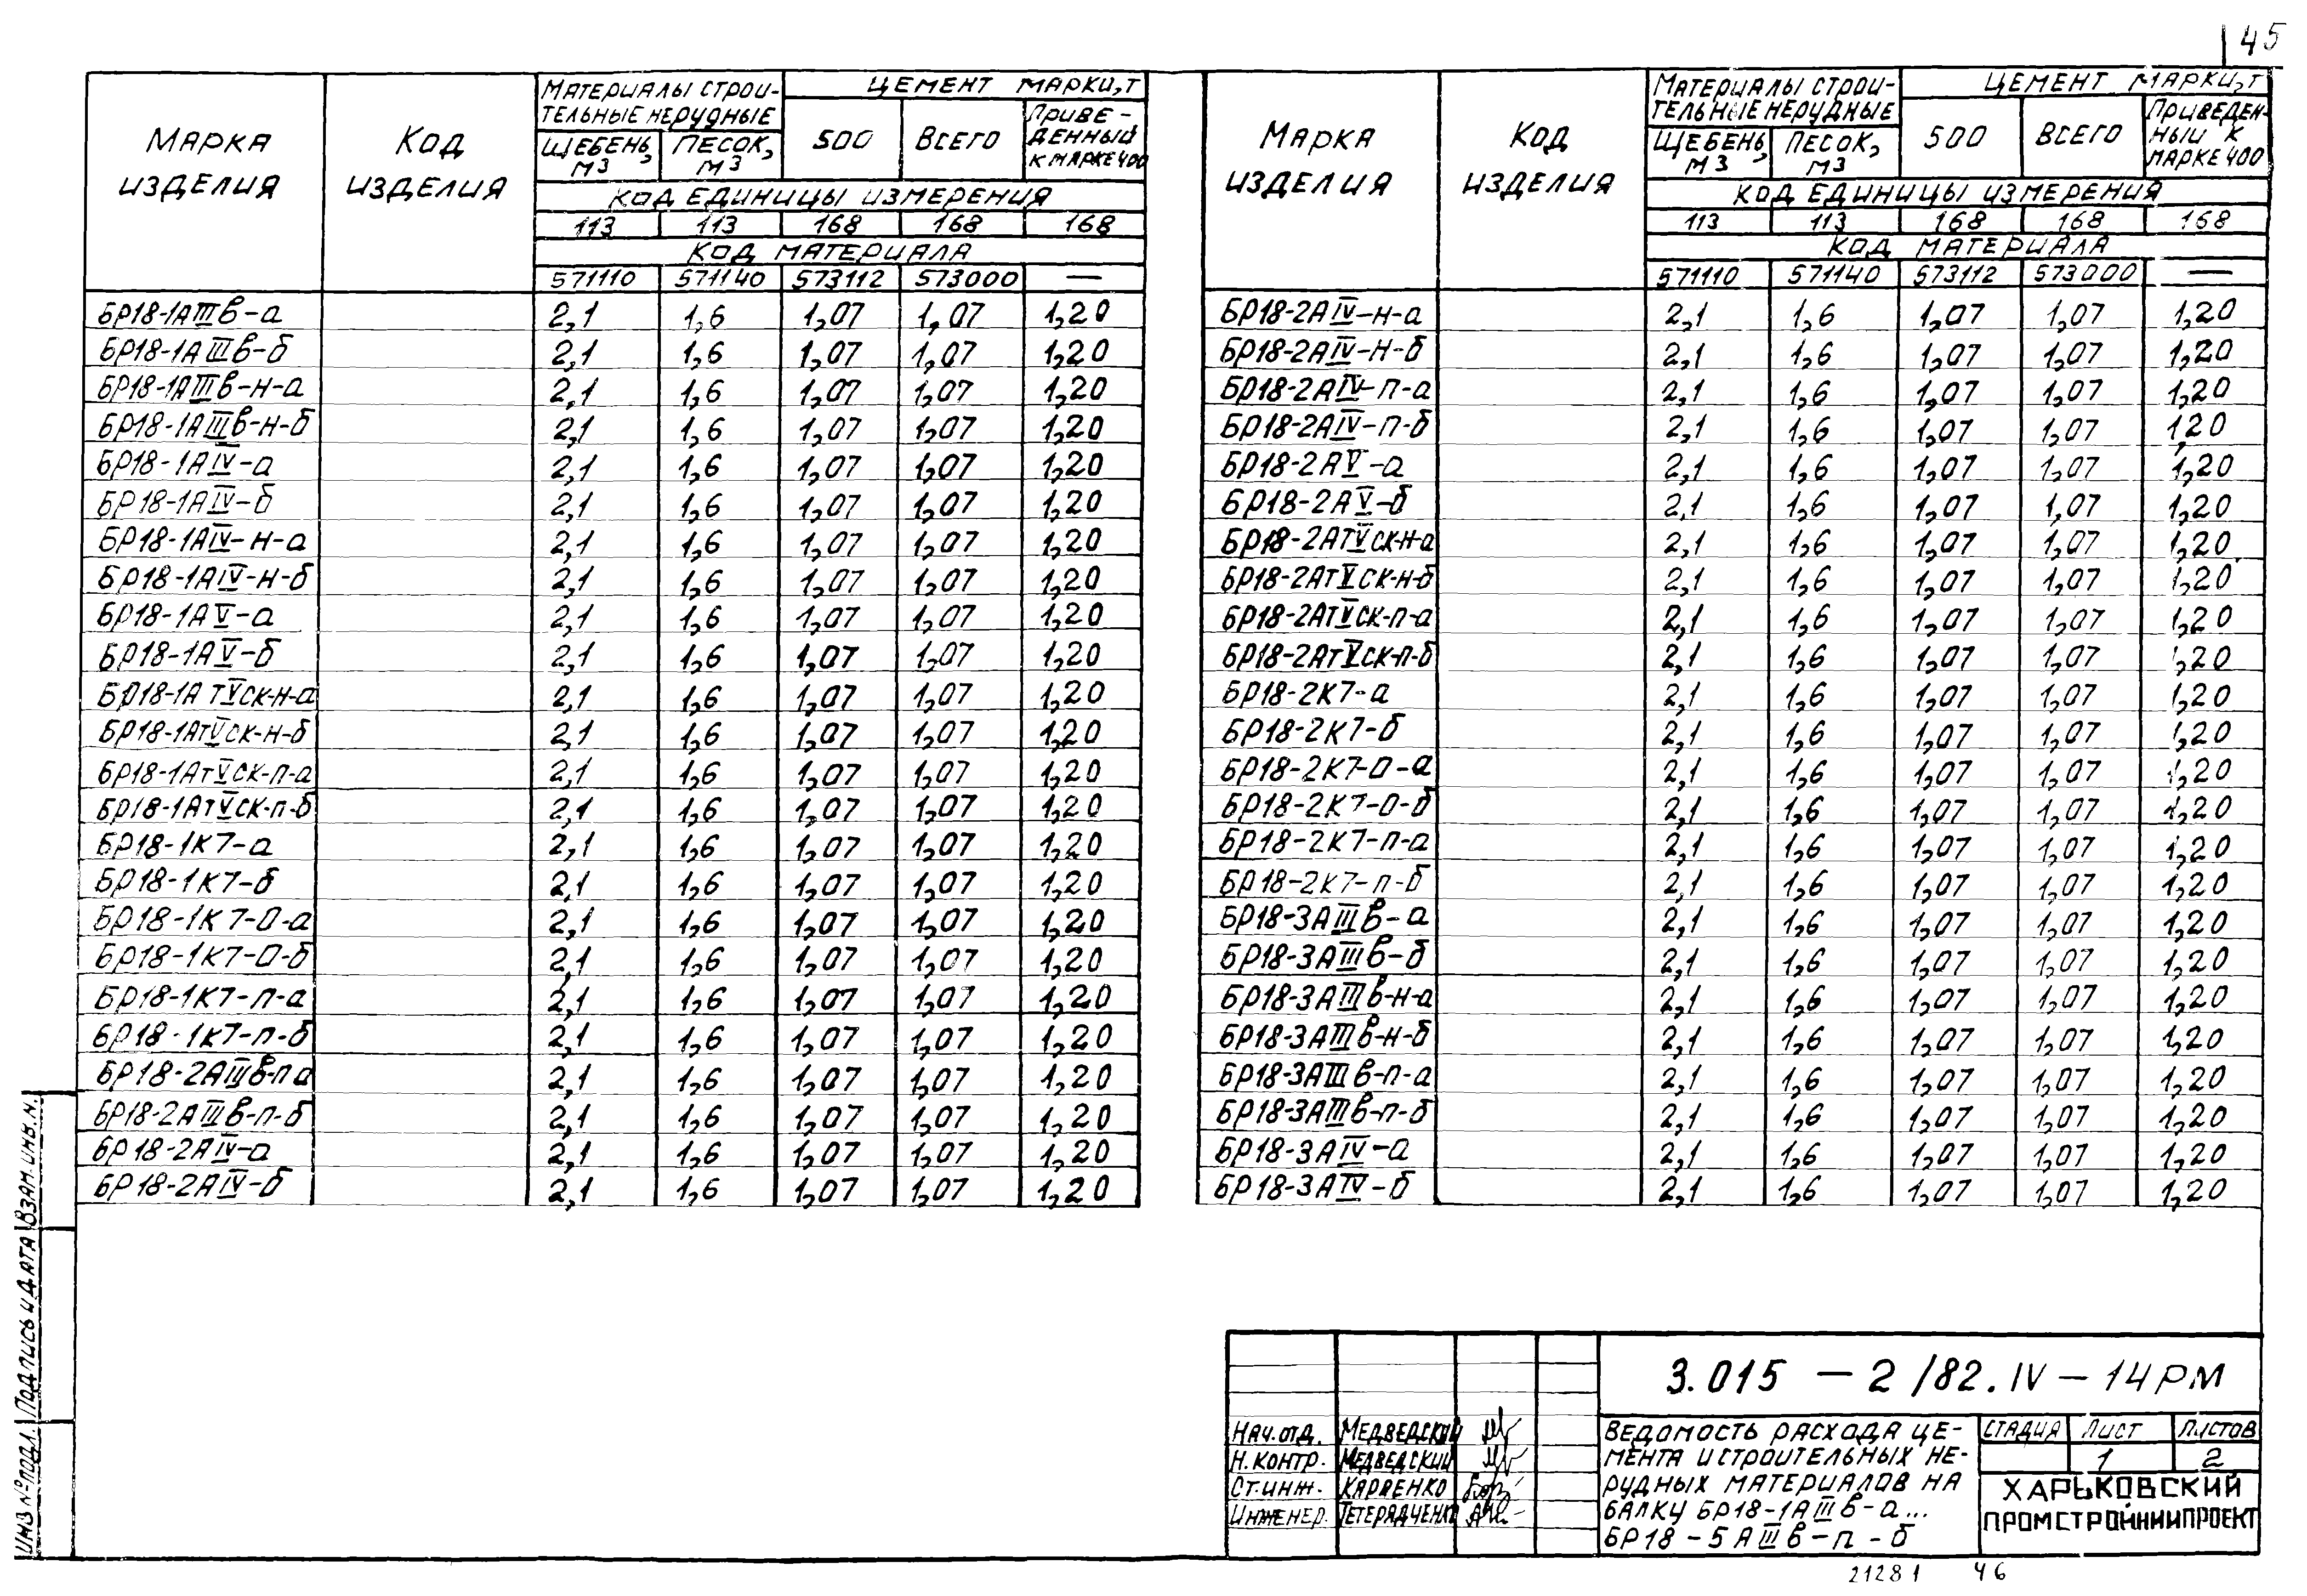 45
МАРКА ИЗДЕЛИЯ
КОД ИЗДЕЛИЯ
МАТЕРИАЛЫ СТРОИ-
ТЕЛЬНЫЕ НЕРУДНЫЕ
ЦЕМЕНТ МАРКИ, Т
ЩЕБЕНЬ, М3
ПЕСОК, М3
500
ВСЕГО
ПРИВЕ-
ДЕННЫЙ
К МАРКЕ 400
КОД ЕДИНИЦЫ ИЗМЕРЕНИЯ
113 113 168 168 168
КОД МАТЕРИАЛА
571110 571140 573112 573000 —
БР18-1АIIIв-а 2,1 1,6 1,07 1,07 1,20
БР18-1АIIIв-б 2,1 1,6 1,07 1,07 1,20
БР18-1АIIIв-н-а 2,1 1,6 1,07 1,07 1,20
БР18-1АIIIв-н-б 2,1 1,6 1,07 1,07 1,20
БР18-1АIV-а 2,1 1,6 1,07 1,07 1,20
БР18-1АIV-б 2,1 1,6 1,07 1,07 1,20
БР18-1АIV-н-а 2,1 1,6 1,07 1,07 1,20
БР18-1АIV-н-б 2,1 1,6 1,07 1,07 1,20
БР18-1АV-а 2,1 1,6 1,07 1,07 1,20
БР18-1АV-б 2,1 1,6 1,07 1,07 1,20
БР18-1АтVск-н-а 2,1 1,6 1,07 1,07 1,20
БР18-1АтVск-н-б 2,1 1,6 1,07 1,07 1,20
БР18-1АтVск-п-а 2,1 1,6 1,07 1,07 1,20
БР18-1АтVск-п-б 2,1 1,6 1,07 1,07 1,20
БР18-1К7-а 2,1 1,6 1,07 1,07 1,20
БР18-1К7-б 2,1 1,6 1,07 1,07 1,20
БР18-1К7-О-а 2,1 1,6 1,07 1,07 1,20
БР18-1К7-О-б 2,1 1,6 1,07 1,07 1,20
БР18-1К7-п-а 2,1 1,6 1,07 1,07 1,20
БР18-1К7-п-б 2,1 1,6 1,07 1,07 1,20
БР18-2АIIIв-п а 2,1 1,6 1,07 1,07 1,20
БР18-2АIIIв-п-б 2,1 1,6 1,07 1,07 1,20
БР18-2АIV-а 2,1 1,6 1,07 1,07 1,20
БР18-2АIV-б 2,1 1,6 1,07 1,07 1,20
МАРКА ИЗДЕЛИЯ
КОД ИЗДЕЛИЯ
МАТЕРИАЛЫ СТРОИ-
ТЕЛЬНЫЕ НЕРУДНЫЕ
ЦЕМЕНТ МАРКИ, Т
ЩЕБЕНЬ, М3
ПЕСОК, М3
500
ВСЕГО
ПРИВЕДЕН-
НЫЙ К
МАРКЕ 400
КОД ЕДИНИЦЫ ИЗМЕРЕНИЯ
113 113 168 168 168
КОД МАТЕРИАЛА
571110 571140 573112 573000 —
БР18-2АIV-н-а 2,1 1,6 1,07 1,07 1,20
БР18-2АIV-н-б 2,1 1,6 1,07 1,07 1,20
БР18-2АIV-п-а 2,1 1,6 1,07 1,07 1,20
БР18-2АIV-п-б 2,1 1,6 1,07 1,07 1,20
БР18-2АV-а 2,1 1,6 1,07 1,07 1,20
БР18-2АV-б 2,1 1,6 1,07 1,07 1,20
БР18-2АтVск-н-а 2,1 1,6 1,07 1,07 1,20
БР18-2АтVск-н-б 2,1 1,6 1,07 1,07 1,20
БР18-2АтVск-п-а 2,1 1,6 1,07 1,07 1,20
БР18-2АтVск-п-б 2,1 1,6 1,07 1,07 1,20
БР18-2К7-а 2,1 1,6 1,07 1,07 1,20
БР18-2К7-б 2,1 1,6 1,07 1,07 1,20
БР18-2К7-О-а 2,1 1,6 1,07 1,07 1,20
БР18-2К7-О-б 2,1 1,6 1,07 1,07 1,20
БР18-2К7-п-а 2,1 1,6 1,07 1,07 1,20
БР18-2К7-п-б 2,1 1,6 1,07 1,07 1,20
БР18-3АIIIв-а 2,1 1,6 1,07 1,07 1,20
БР18-3АIIIв-б 2,1 1,6 1,07 1,07 1,20
БР18-3АIIIв-н-а 2,1 1,6 1,07 1,07 1,20
БР18-3АIIIв-н-б 2,1 1,6 1,07 1,07 1,20
БР18-3АIIIв-п-а 2,1 1,6 1,07 1,07 1,20
БР18-3АIIIв-п-б 2,1 1,6 1,07 1,07 1,20
БР18-3АIV-а 2,1 1,6 1,07 1,07 1,20
БР18-3АIV-б 2,1 1,6 1,07 1,07 1,20
ИНВ № ПОДЛ. ПОДПИСЬ И ДАТА ВЗАМ. ИНВ. N.
3.015 — 2/82.IV — 14РМ
НАЧ. ОТД. МЕДВЕДСКИЙ
Н. КОНТР. МЕДВЕДСКИЙ
СТ. ИНЖ.
ИНЖЕНЕР.
ВЕДОМОСТЬ РАСХОДА ЦЕ-
МЕНТА И СТРОИТЕЛЬНЫХ НЕ-
РУДНЫХ МАТЕРИАЛОВ НА
БАЛКУ БР18-1АIIIв-а...
БР18-5АIIIв-п-б
СТАДИЯ ЛИСТ ЛИСТОВ
1 2
ХАРЬКОВСКИЙ
ПРОМСТРОЙНИИПРОЕКТ
21281 46